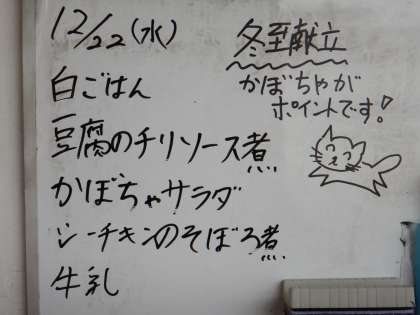 12/22(水)
白ごはん
豆腐のチリソース煮
かぼちゃサラダ
シーチキンのそぼろ煮
牛乳
冬至献立
かぼちゃが
ポイントです!